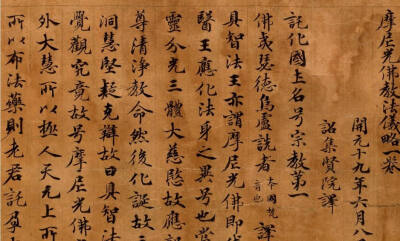 摩尼光佛教法儀略一卷
開元十九年六月八
詔集賢院譯
託化國土名號宗教第一
佛夷瑟德烏盧詵者 本國梵音也 譯
具智法王亦謂摩尼光佛即
醫王應化法身之異號也當
靈分光三體大慈愍故應
尊清淨教命然後化誕故
洞慧堅疑克辯故曰具智法
覺觀究竟故號摩尼光佛
外大慧所以極人天无上所
所以布法藥則老君託孕